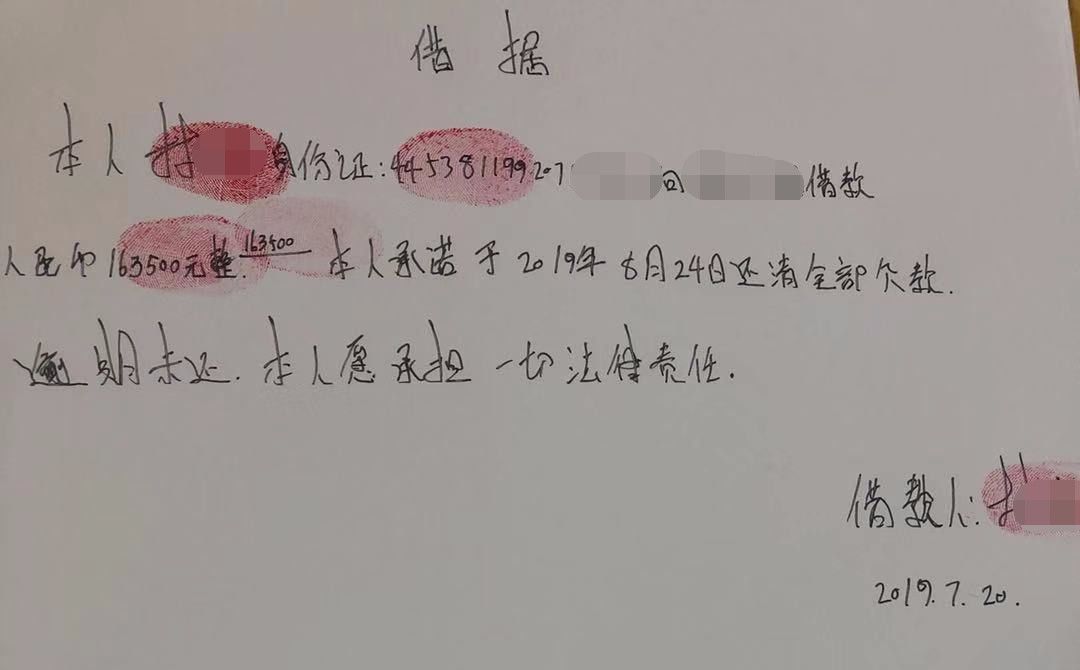 借 据
本人 身份证:445381199207 向 借款
人民币163500元整.163500 本人承诺于2019年8月24日还清全部欠款.
逾期未还.本人愿承担一切法律责任.
借款人:
2019.7.20.